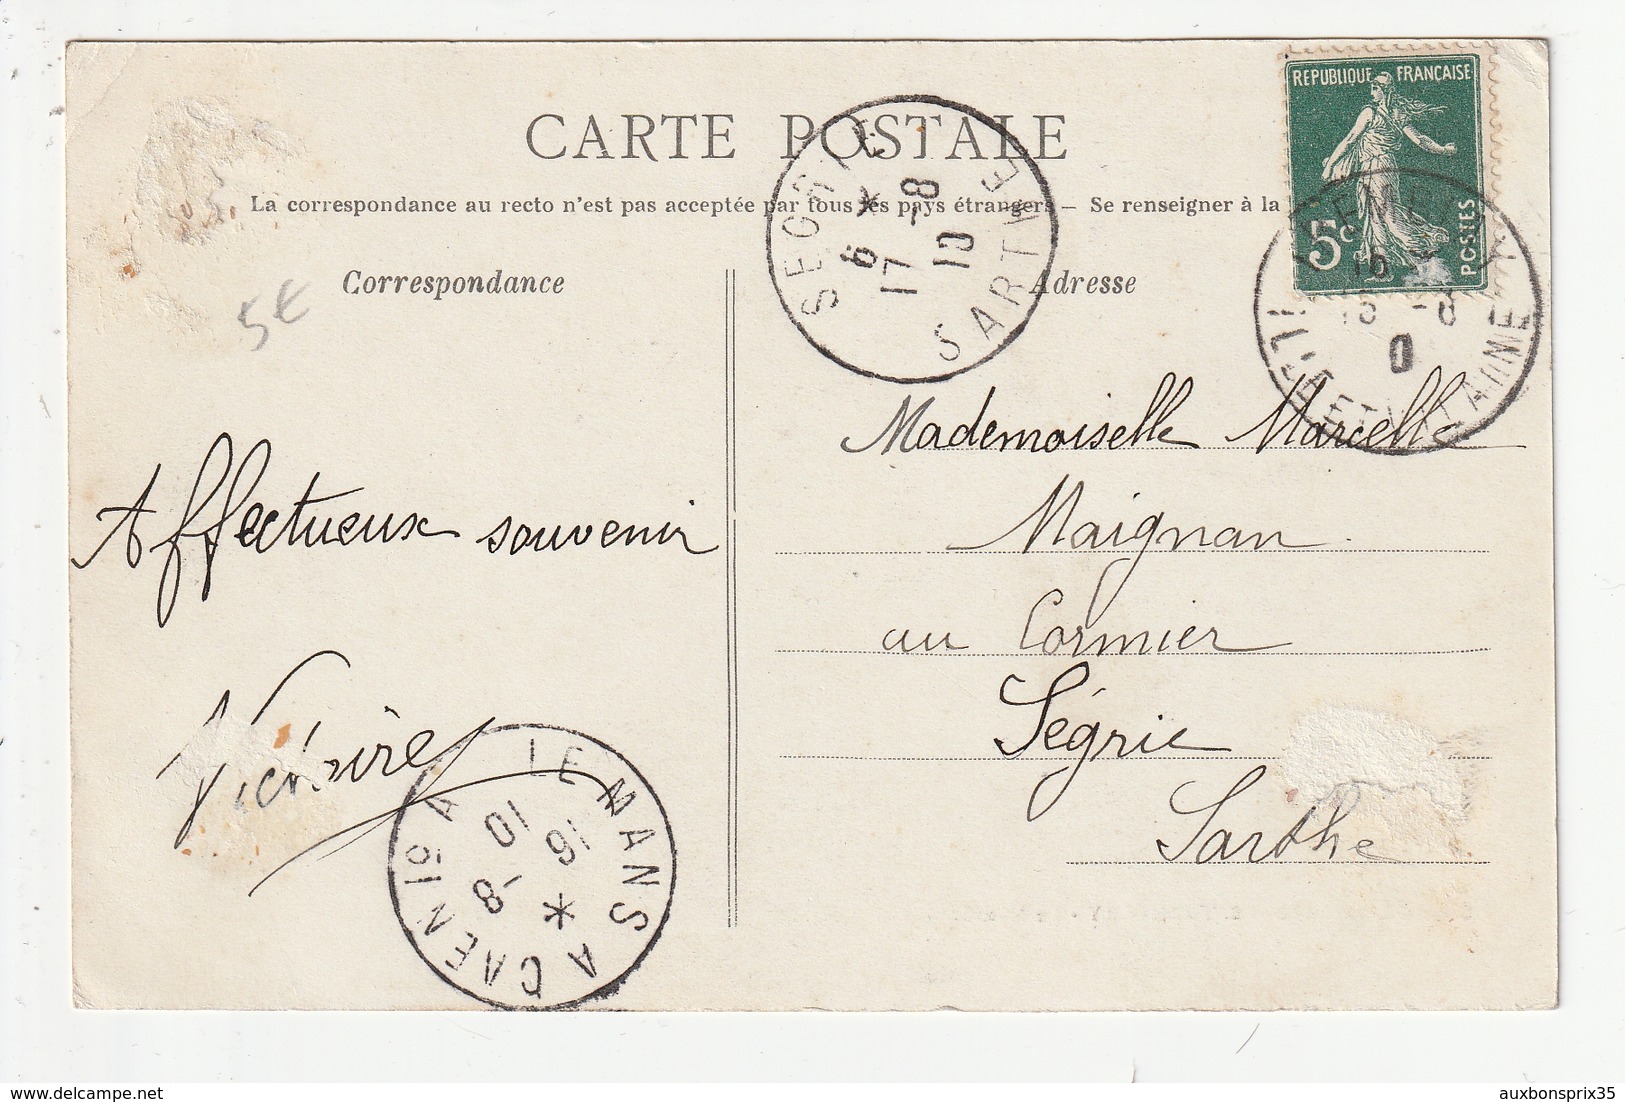 CARTE POSTALE
REPUBLIQUE FRANÇAISE
5c
POSTES
La correspondance au recto n'est pas acceptée par tous les pays étrangers — Se renseigner à la
SEGRIE
SARTHE
6 *
17 -8
10
Correspondance
Adresse
5€
ILLE-ET-VILAINE
Affectueux souvenir
Victoire
Mademoiselle Marcelle
Maignan
au Cormier
Ségrie
Sarthe
LE MANS A CAEN 1º A
16
-8
10
delcampe.net
auxbonsprix35